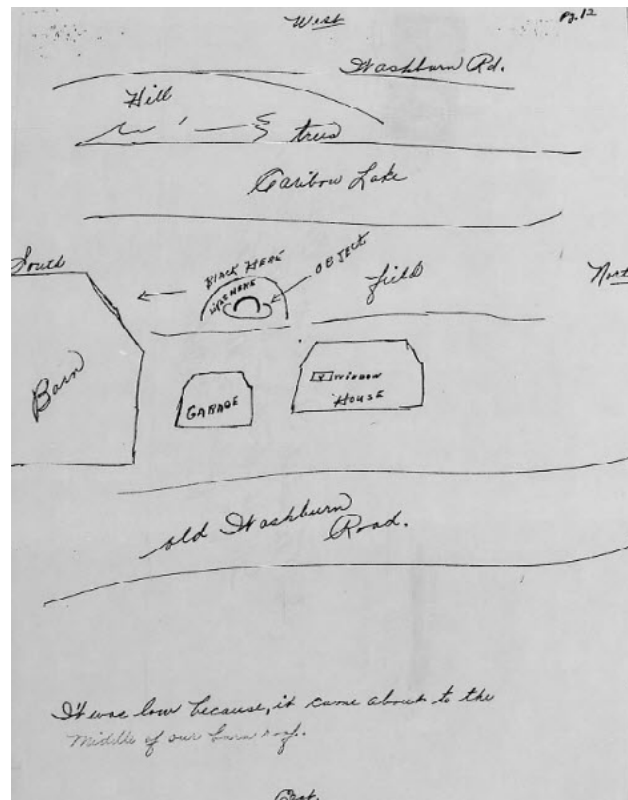 West
Pg. 12
Washburn Rd.
Hill
trees
Caribow Lake
South
BLACK HERE
OBJECT
field
Nort
HERE
Barn
GARAGE
WINDOW
HOUSE
old Washburn
Road.
It was low because, it came about to the
middle of our barn roof.
East.